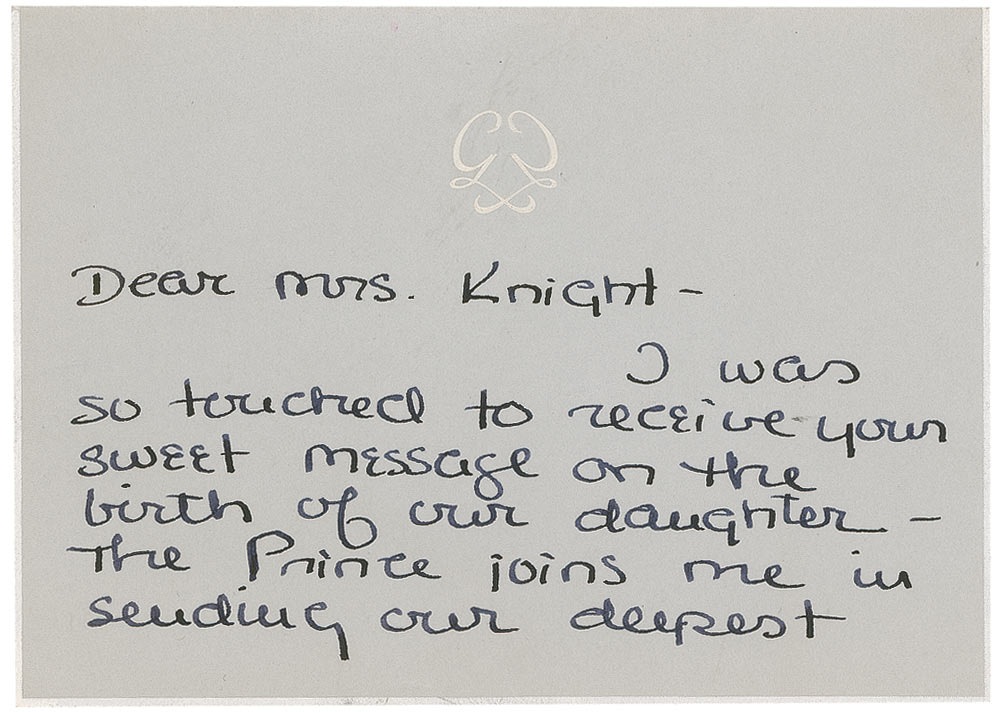 Dear Mrs. Knight –
I was
so touched to receive your
sweet message on the
birth of our daughter –
The Prince joins me in
sending our deepest